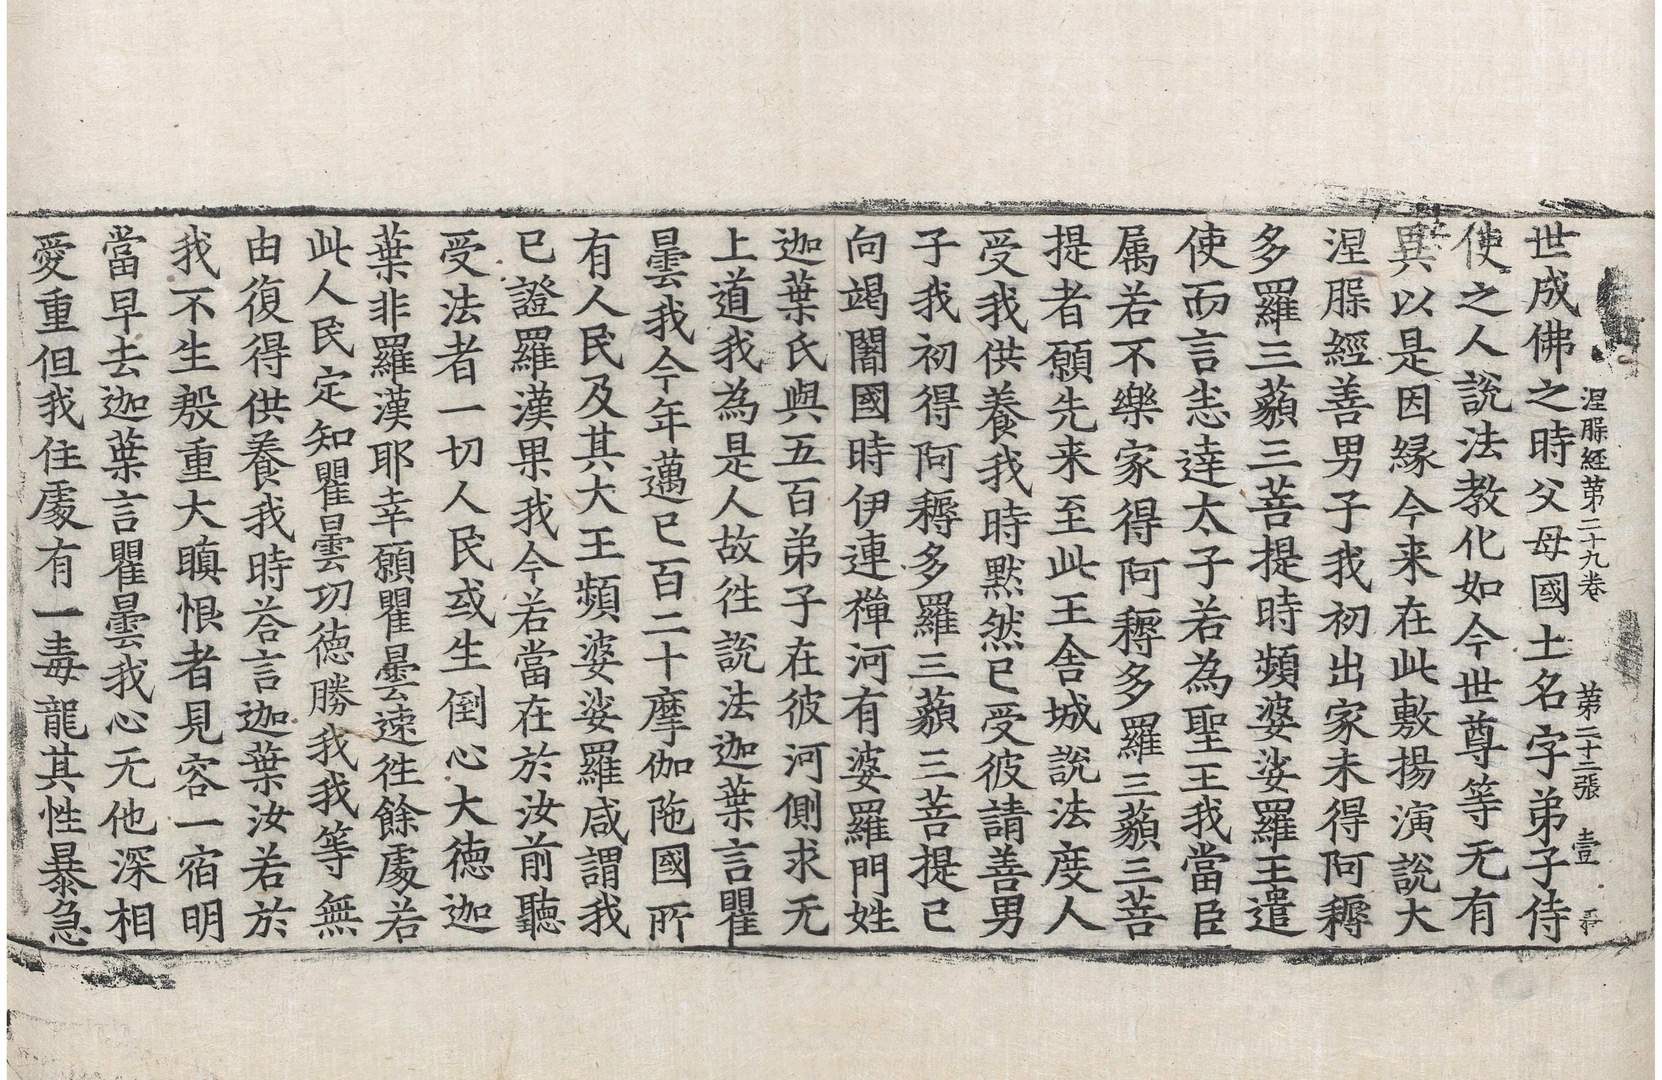 涅槃経苐二十九卷 苐二十三張 壹
世成佛之時父母國土名字弟子侍
使之人說法教化如今世尊等无有
異以是因縁今来在此敷揚演說大
涅槃經善男子我初出家未得阿耨
多羅三藐三菩提時頻婆娑羅王遣
使而言悉達太子若為聖王我當臣
属若不樂家得阿耨多羅三藐三菩
提者願先来至此王舍城說法度人
受我供養我時默然已受彼請善男
子我初得阿耨多羅三藐三菩提已
向竭闍國時伊連禪河有婆羅門姓
迦葉氏與五百弟子在彼河側求无
上道我為是人故徃說法迦葉言瞿
曇我今年邁已百二十摩伽陁國所
有人民及其大王頻婆娑羅咸謂我
已證羅漢果我今若當在於汝前聽
受法者一切人民或生倒心大德迦
葉非羅漢耶幸願瞿曇速徃餘處若
此人民定知瞿曇功德勝我我等無
由復得供養我時荅言迦葉汝若於
我不生慇重大瞋恨者見容一宿明
當早去迦葉言瞿曇我心无他深相
愛重但我住處有一毒龍其性暴急